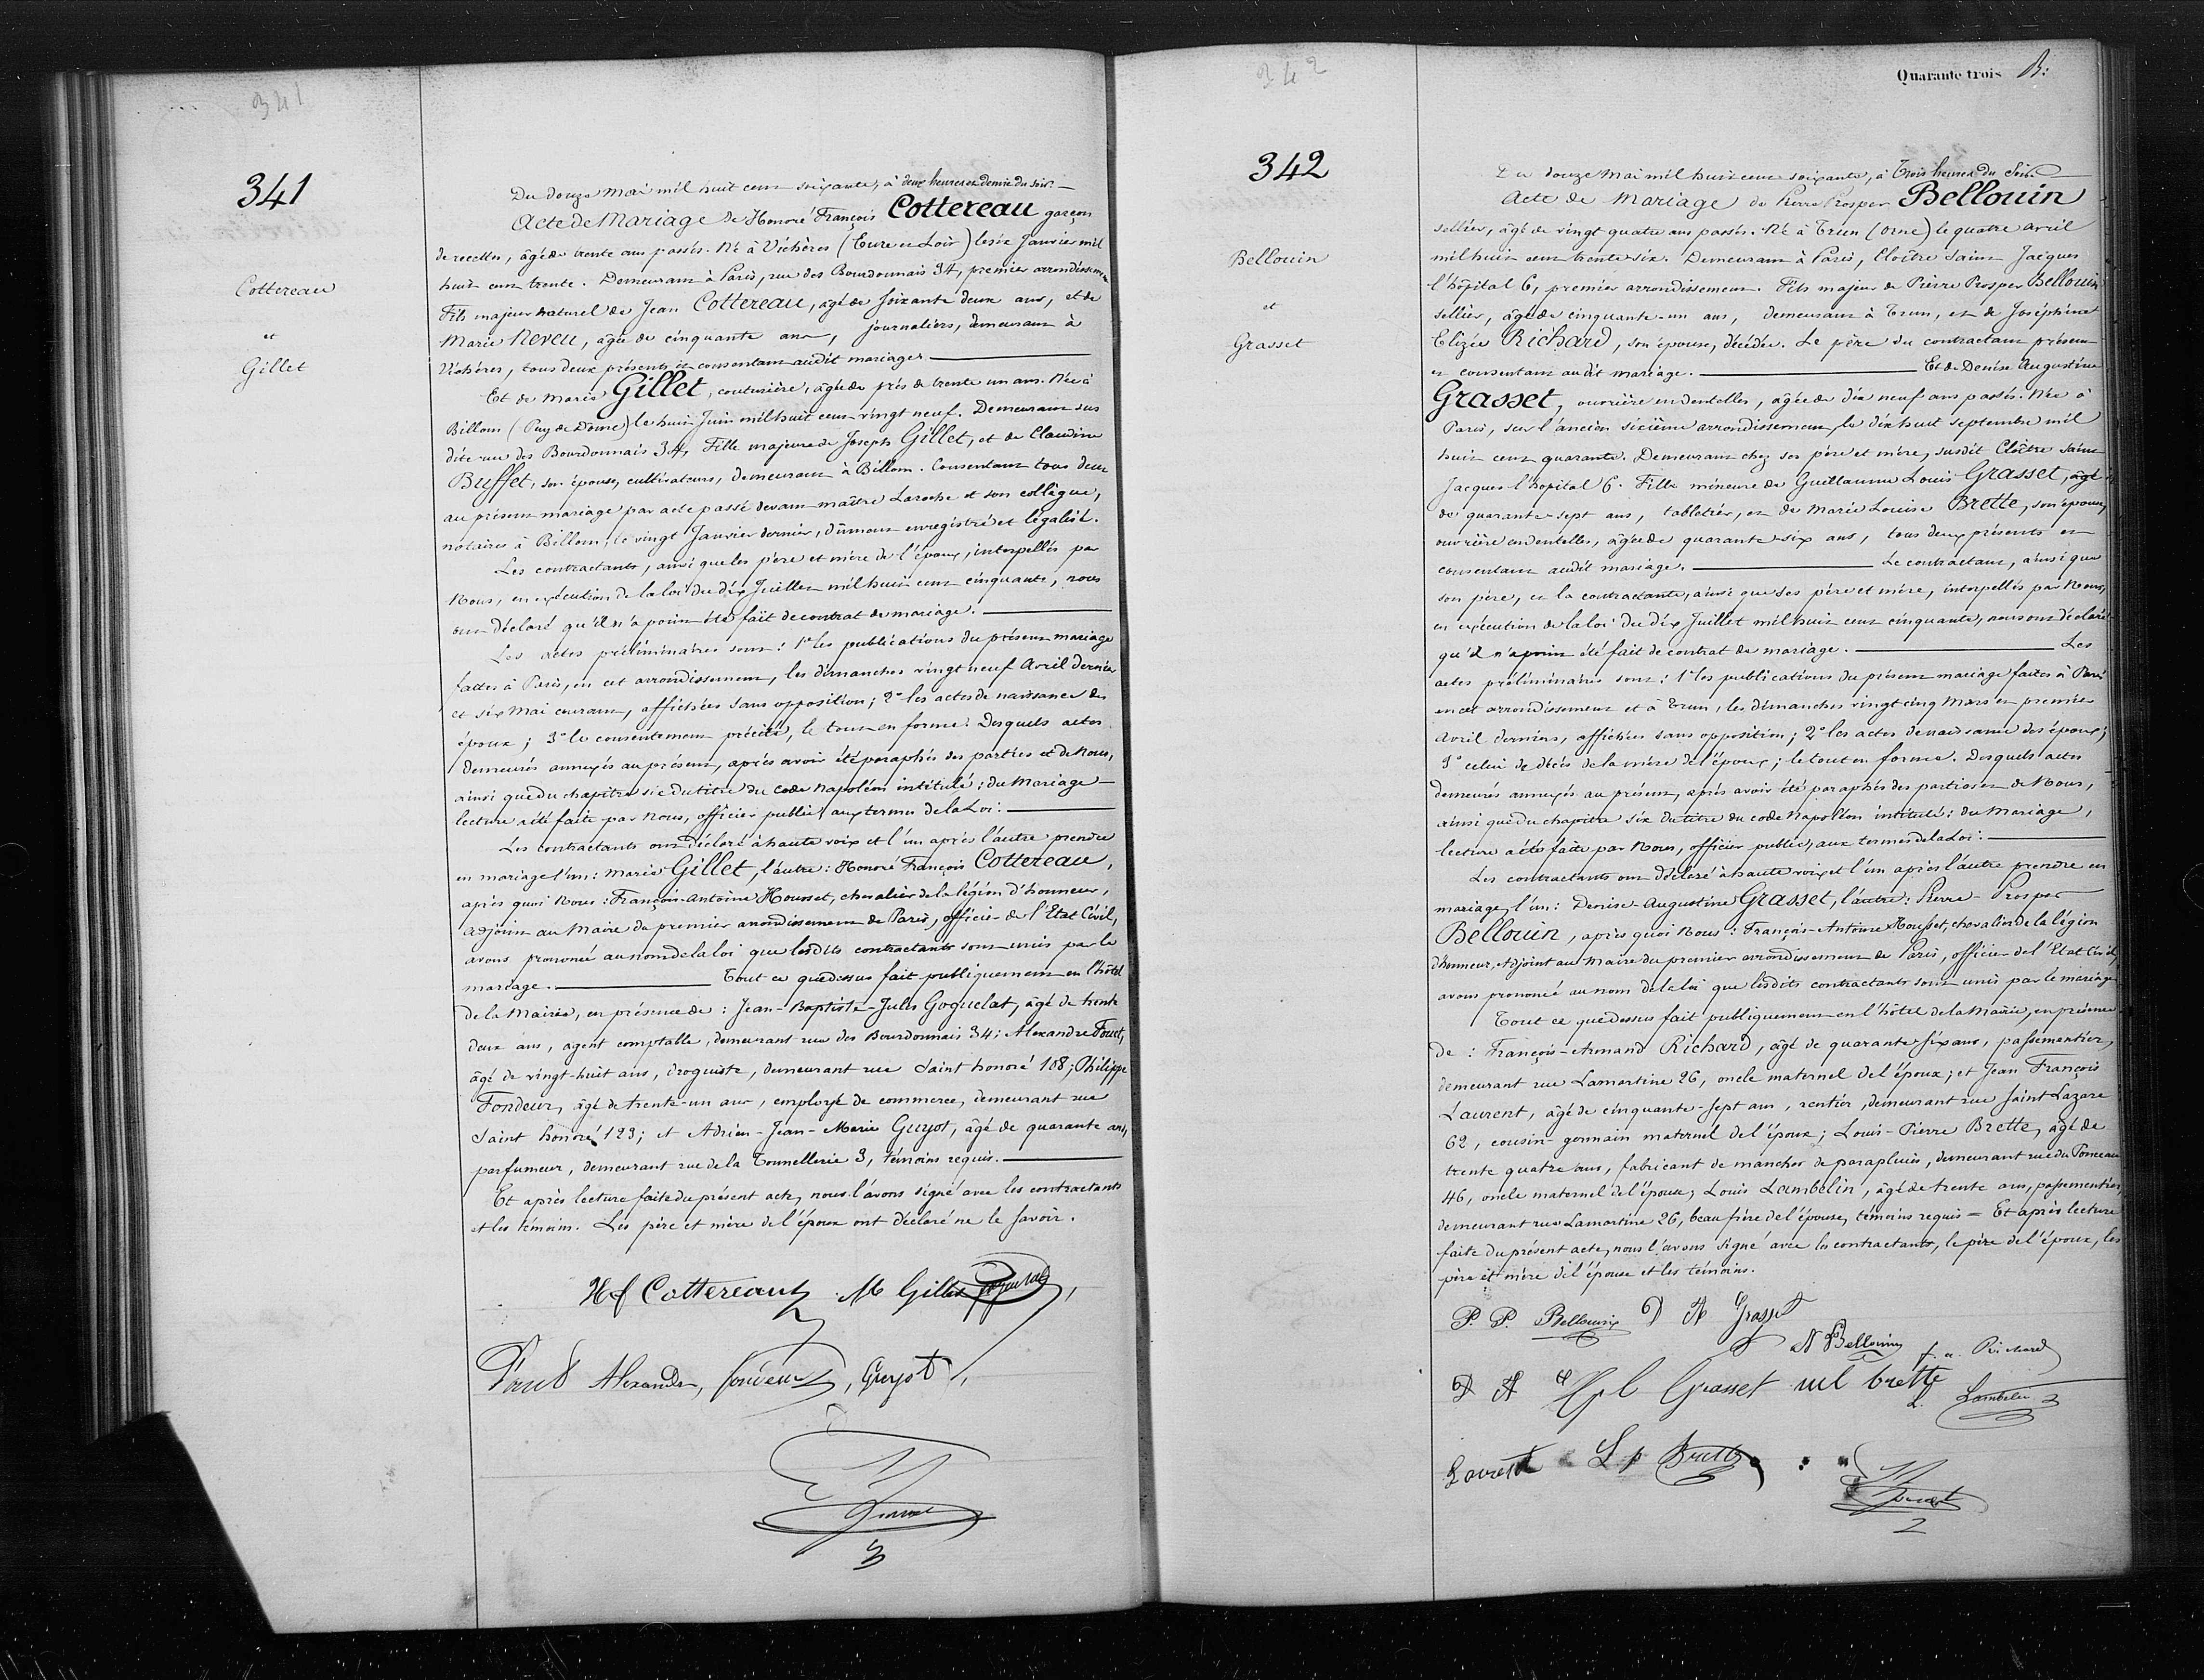 341
341
Cottereau
et
Gillet
Du douze Mai mil huit cent soixante, à deux heures et demie du soir.
Acte de Mariage de Honoré François Cottereau garçon
de recettes, âgé de trente ans passés. Né à Vichères (Eure et Loir) le six Janvier mil
huit cent trente. Demeurant à Paris, rue des Bourdonnais 34, premier arrondissement
Fils majeur naturel de Jean Cottereau, âgé de soixante deux ans, et de
Marie Neveu, âgée de cinquante ans, journaliers, demeurant à
Vichères, tous deux présents et consentant audit mariage.
Et de Marie Gillet, couturière, âgée de près de trente un ans. Née à
Billom (Puy de Dome) le huit Juin mil huit cent vingt neuf. Demeurant sus
dite rue des Bourdonnais 34. Fille majeure de Joseph Gillet, et de Claudine
Buffet, son épouse, cultivateurs, demeurant à Billom. Consentant tous deux
au présent mariage par acte passé devant maître Laroche et son collègue,
notaires à Billom, le vingt Janvier dernier, dûment enregistré et légalisé.
Les contractants, ainsi que les père et mère de l'époux, interpellés par
Nous, en exécution de la loi du dix Juillet mil huit cent cinquante, nous
ont déclaré qu'il n'a point été fait de contrat de mariage.
Les actes préliminaires sont : 1° les publications du présent mariage
faites à Paris, en cet arrondissement, les dimanches vingt neuf Avril dernier
et six Mai courant, affichées sans opposition; 2° les actes de naissance des
époux; 3° le consentement précité, le tout en forme. Desquels actes
demeurés annexés au présent, après avoir été paraphés des parties et de Nous,
ainsi que du chapitre six du titre du code Napoléon intitulé : du Mariage
lecture a été faite par Nous, officier public, aux termes de la Loi.
Les contractants ont déclaré à haute voix et l'un après l'autre prendre
en mariage l'un : Marie Gillet, l'autre : Honoré François Cottereau,
après quoi Nous : François-Antoine Housset, chevalier de la légion d'honneur,
Adjoint au Maire du premier arrondissement de Paris, officier de l'Etat Civil,
avons prononcé au nom de la loi que lesdits contractants sont unis par le
mariage. Tout ce que dessus fait publiquement en l'hôtel
de la Mairie, en présence de : Jean-Baptiste-Jules Goguelat, âgé de trente
deux ans, agent comptable, demeurant rue des Bourdonnais 34; Alexandre Fouet,
âgé de vingt-huit ans, droguiste, demeurant rue Saint honoré 108; Philippe
Fondeur, âgé de trente-un ans, employé de commerce, demeurant rue
Saint honoré 123; et Adrien-Jean-Marie Guyot, âgé de quarante ans,
parfumeur, demeurant rue de la Tonnellerie 3, témoins requis.
Et après lecture faite du présent acte, nous l'avons signé avec les contractants
et les témoins. Les père et mère de l'époux ont déclaré ne le savoir.
Hf Cottereau M Gillet Goguelat
Alexandre, fondeur, Guyot
Housset
3
342
Quarante trois B:
342
Bellouin
et
Grasset
Du douze Mai mil huit cent soixante, à Trois heures du Soir.
Acte de Mariage de Pierre Prosper Bellouin
sellier, âgé de vingt quatre ans passés. Né à Trun (Orne) le quatre avril
mil huit cent trente six. Demeurant à Paris, Cloître Saint Jacques
l'hôpital 6, premier arrondissement. Fils majeur de Pierre Prosper Bellouin
sellier, âgé de cinquante-un ans, demeurant à Trun, et de Joséphine
Elizée Richard, son épouse, décédée. Le père du contractant présent
et consentant audit mariage. Et de Denise Augustine
Grasset, ouvrière en dentelles, âgée de dix neuf ans passés. Née à
Paris, sur l'ancien sixième arrondissement, le dix huit septembre mil
huit cent quarante. Demeurant chez ses père et mère, susdit Cloître Saint
Jacques l'hopital 6. Fille mineure de Guillaume Louis Grasset, âgé
de quarante-sept ans, tabletier, et de Marie Louise Brette, son épouse,
ouvrière en dentelles, âgée de quarante-six ans, tous deux présents et
consentant audit mariage. Le contractant, ainsi que
son père, et la contractante, ainsi que ses père et mère, interpellés par Nous,
en exécution de la loi du dix Juillet mil huit cent cinquante, nous ont déclaré
qu'il n'a point été fait de contrat de mariage. Les
actes préliminaires sont : 1° les publications du présent mariage faites à Paris
en cet arrondissement et à Trun, les dimanches vingt cinq Mars et premier
Avril derniers, affichées sans opposition; 2° les actes de naissance des époux;
3° celui de décès de la mère de l'époux; le tout en forme. Desquels actes
demeurés annexés au présent, après avoir été paraphés des parties et de Nous,
ainsi que du chapitre six du titre du code Napoléon intitulé : du Mariage,
lecture a été faite par Nous, officier public, aux termes de la Loi.
Les contractants ont déclaré à haute voix et l'un après l'autre prendre en
mariage, l'un : Denise-Augustine Grasset, l'autre : Pierre-Prosper
Bellouin, après quoi Nous : François-Antoine Housset, chevalier de la légion
d'honneur, Adjoint au Maire du premier arrondissement de Paris, officier de l'Etat Civil,
avons prononcé au nom de la loi que lesdits contractants sont unis par le mariage
Tout ce que dessus fait publiquement en l'hôtel de la Mairie, en présence
de : François-Armand Richard, âgé de quarante six ans, passementier,
demeurant rue Lamartine 26, oncle maternel de l'époux; et Jean François
Laurent, âgé de cinquante-sept ans, rentier, demeurant rue Saint Lazare
62, cousin-germain maternel de l'époux; Louis-Pierre Brette, âgé de
trente quatre ans, fabricant de manches de parapluies, demeurant rue du Ponceau
46, oncle maternel de l'épouse; Louis Lambelin, âgé de trente ans, passementier,
demeurant rue Lamartine 26, beau frère de l'épouse, témoins requis = Et après lecture
faite du présent acte, nous l'avons signé avec les contractants, le père de l'époux, les
père et mère de l'épouse et les témoins.
P. P. Bellouin D A Grasset
Bellouin f. a. Richard
D A Grasset brette L. Lambelin
Laurent L p Brette
Housset
2